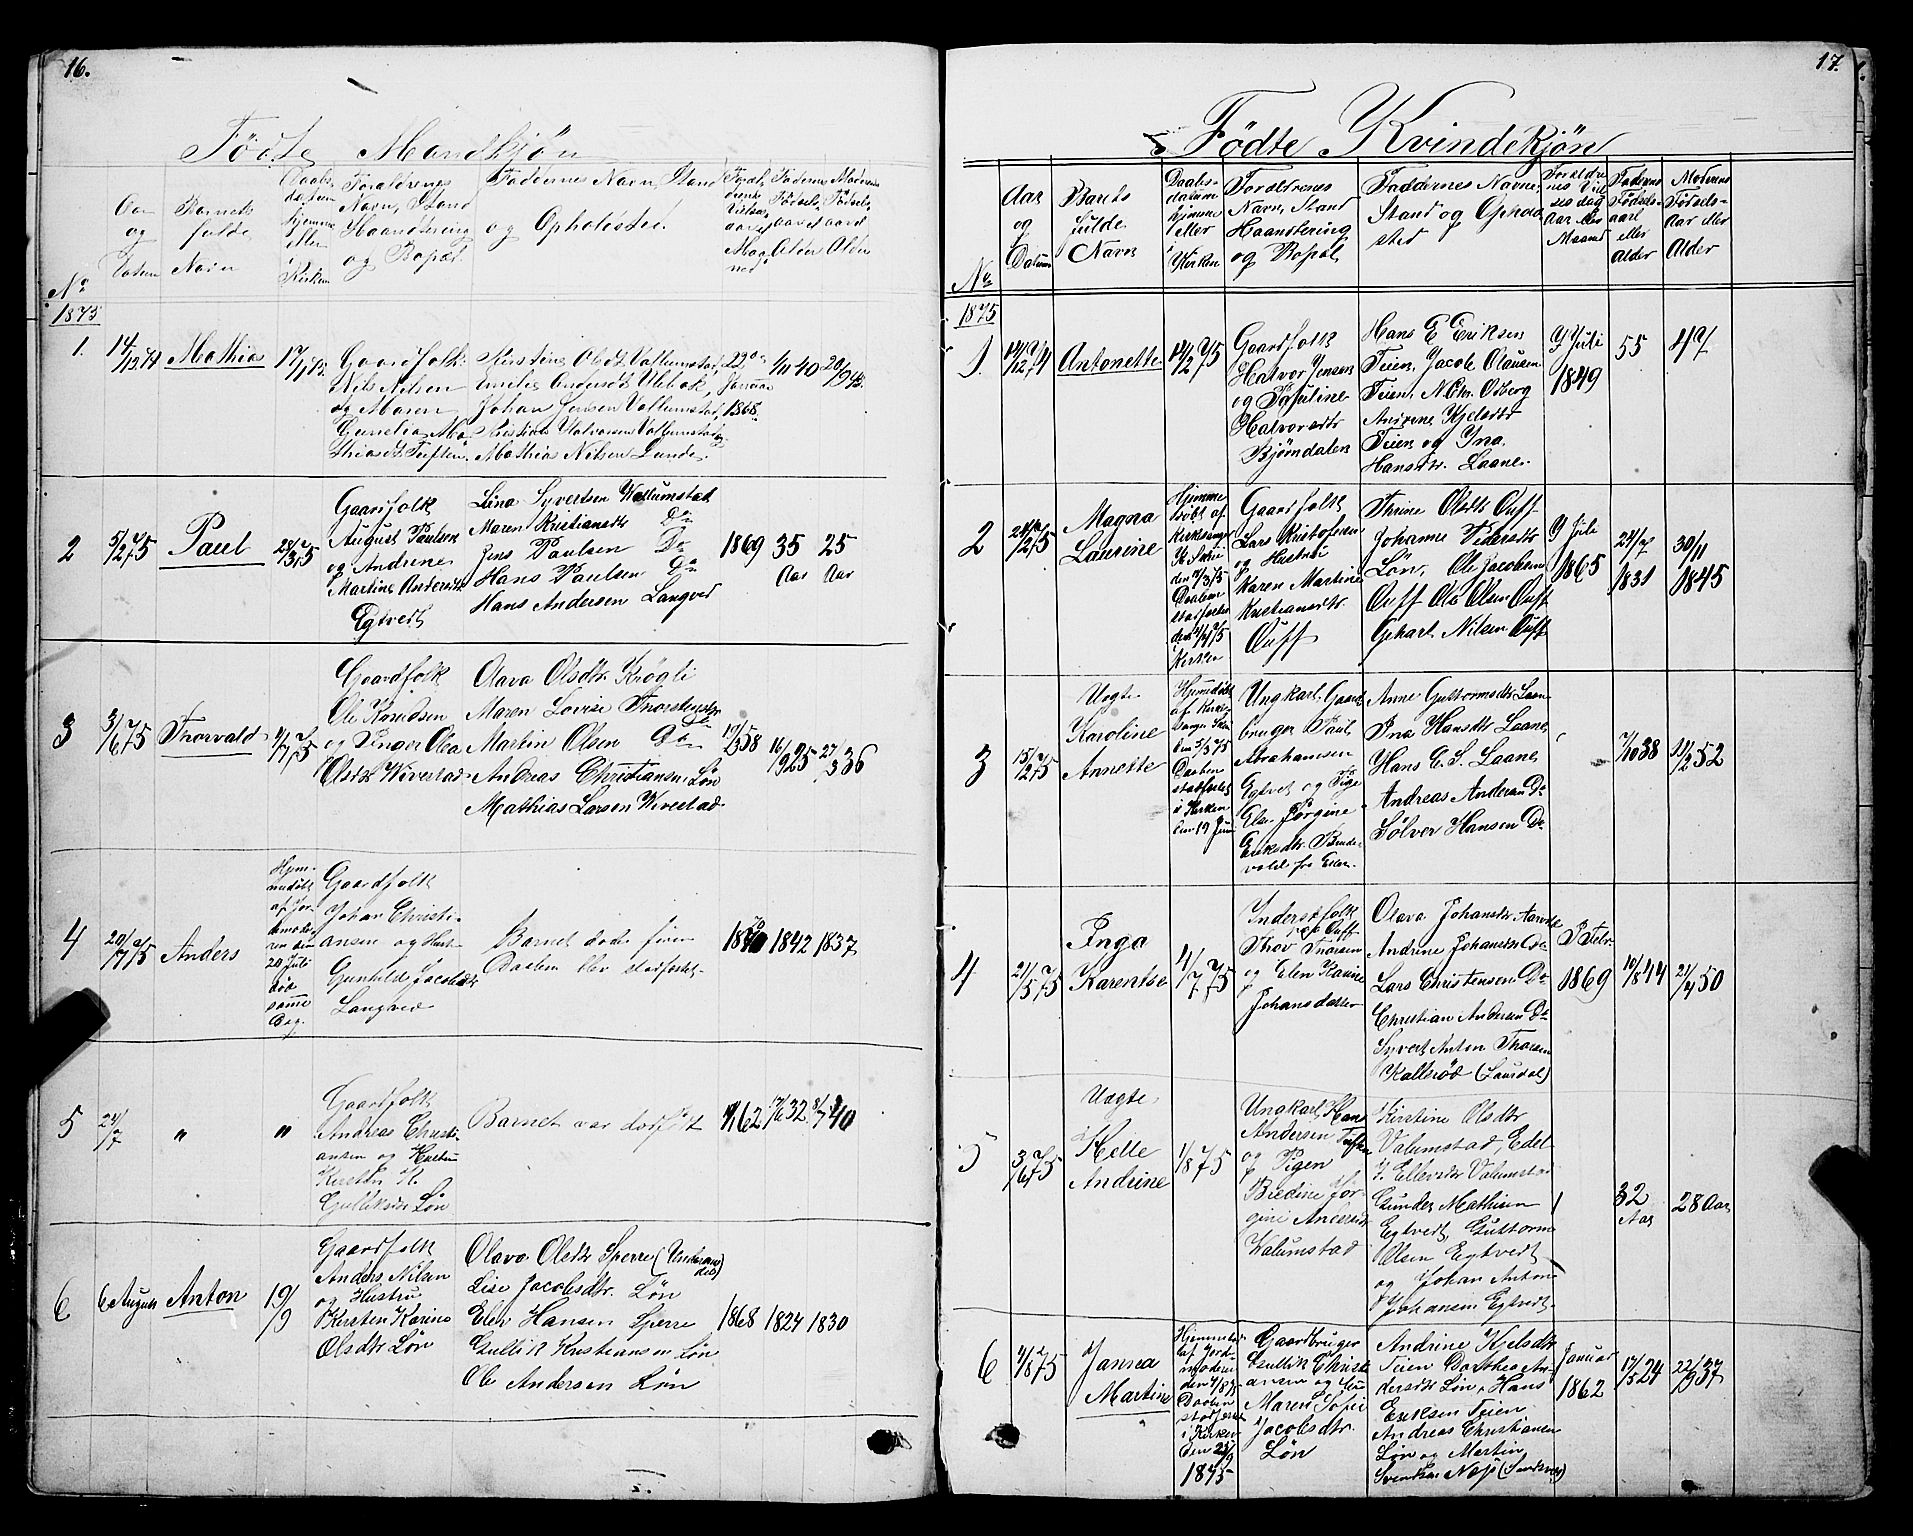 16.
Födte Mandkjön
No
Aar og Datum
Barnets fulde Navn
Daabsdatum hjemme eller i Kirken
Foraldrenes Navn, Stand Haandtering og Bopæl
Faddernes Navn, Stand og Opholdsted.
1875
1.
14/12 74
Mathias
Gaardfolk
Nils Nilsen
og Maren
Gunelia Ma-
thiasdt. Tuften.
Kirstine Olsdt. Vallumstad,
Johan Jensen Vallumstad,
Kristian Halvorsen Vallumstad
Mathias Nilsen Lunde.
22de
Januar
1868.
2
5/2 75
Paul
28/3 75
Gaardfolk
August Paulsen
og Andrine
Martine Andersdt
Egtvedt
Lina Syvertsen Wallumstad
Maren Kristiansdt Do
Jens Paulsen Do
Hans Paulsen Do
Hans Andersen Langved
1869
35
Aar
25
Aar
3
3/6 75
Thorvald
4/7 75
Gaardfolk
Ole Knudsen
og Inger Olea
Olsdt Kivestad
Olava Olsdt. Krøgli
Maren Lovise Thorstensdt
Martin Olsen Do
Andreas Christiansen Løn
Mathias Larsen Kivestad
19/3 58
16/9 25
27/3 36
4
20/7 75
Anders
Hjem-
medøbt
af Jor-
demode-
ren den
20 Juli
død
samme
Dag.
Gaardfolk
Johan Christi-
ansen og Hust.
Gunhild Jacobsdt
Langved
Barnet døde før
Daaben blev stadfæstet.
1842
1837
5
24/7
"
"
Gaardfolk
Andreas Christi-
ansen og Hustru
Kirstin K.
Gulliksdt Løn
Barnet var dødfødt
62
17/6 32
8/7 40
6
6 August
Anton
19/9
Gaardfolk
Anders Nilsen
og Hustru
Kirsten Karine
Olsdtr Løn
Olava Olsdtr Sperre
Lise Jacobsdtr. Løn
Elev Hansen Sperre
Gullik Kristiansen Løn
Ole Andersen Løn
1868
1824
1830
17.
Födte Kvindekjön
No
Aar og Datum
Barnets fulde Navn
Daabsdatum hjemme eller i Kirken
Foreldrenes Navn, Stand Haandtering og Bopæl
Faddernes Navne, Stand og Opholdsted
Foreldrenes Vielsesdag Aar og Maaned
Faderens Fødselsaar eller Alder
Moderens Fødselsaar eller Alder
1875
1.
14/12 74
Antonette
14/2 75
Gaardfolk
Halvor Jensen
og Pauline
Halvorsdt
Bjørndalen
Hans E Eriksen
Teien, Jacob Olausen
Teien, N Chr. Osberg
Andrine Kjelsdtr
Teien og Ina
Hansdtr. Laane.
Juli
1849
55
2
Magna
Laurine
Gaardfolk
Lars Kristofersen
og Hustru
Karen Martine
Kristiansdtr.
Øuff
Thrine Olsdt Øuff
Johanne Pedersdtr
Løn, Ole Jacobsen
Øuff Ole Olsen Øuff
Gehart Nilsen Øuff
Juli
1865
1831
30/11
1845
3
15/2 75
Uægte
Karoline
Annette
Hjemdøbt
af Kirke-
sanger
den 5/3 75
Daaben
stadfæstet
i Kirken
den 19 Juni
Ungkarl. Gaard-
bruger Paul
Abrahamsen
Egtvet og Pige
Elen Jørgine
Eriksdtr.
Anne Guttormsdt Laane
Ina Hansdt Laane
Hans E. S. Laane,
Andreas Andersen Do
Sølver Hansen Do
7/10 38
11/2 52
4
21/5 75
Inga
Karentse
4/7 75
Inderstfolk
Thov Thorsen
og Elen Karine
Johansdatter
Olava Johansdt
Andrine Johansdt Do
Lars Christensen Do
Christian Andersen Do
Syvert Anton Thorsen
Kallerød
Febr.
1869
10/8 44
21/4 50
5
3/6 75
Uægte
Helle
Andrine
1/8 75
Ungkarl Hans
Andersen Tuften
og Pigen
Bredine Jør-
gine Andersdt
Walumstad
Kirstine Olsdtr
Valumstad, Edel
J. Ellevsdt Valumstad
Gunder Mathisen
Egtvedt, Guttorm
Olsen Egtvedt
og Johan Anton
Johansen Egtvedt.
32
Aar
28 Aar
6
4/8 75
Jansea
Martine
Hjemmedøbt
af Jord-
moderen
den 4/8 75
Daaben
stadfæstet
i Kirken
1875
Gaardbruger
Gullik Christi-
ansen og Hustru
Maren Sofie
Jacobsdtr.
Løn
Andrine Kjelsdtr
Teien Dorthea An-
dersdtr Løn, Hans
Eriksen Teien
Andreas Christiansen
Løn og Martin
Svendsen
Januar
1862
17/5 24
22/9 37